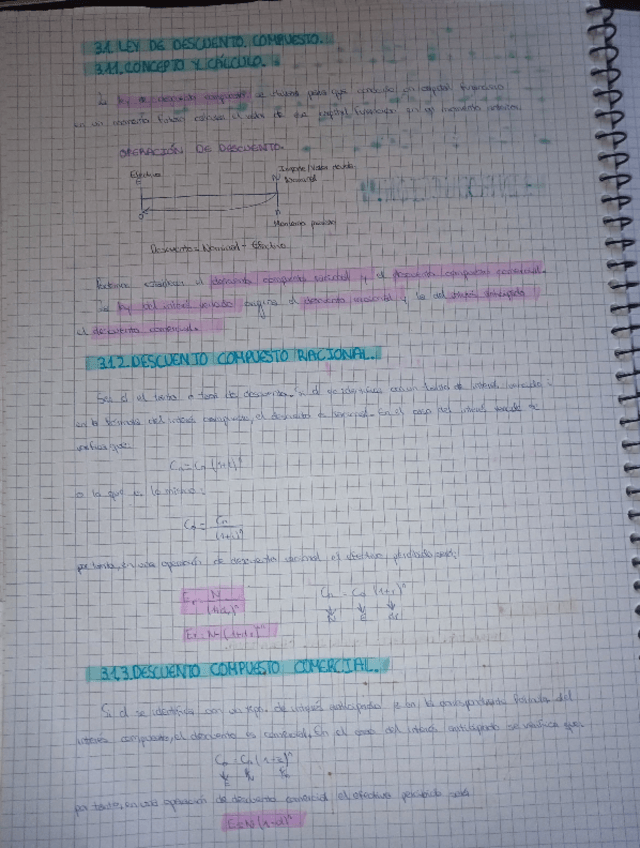 3.1. LEY DE DESCUENTO COMPUESTO.
3.1.1. CONCEPTO Y CÁLCULO.
La ley de descuento compuesto se utiliza para que, conocido un capital financiero
en un momento futuro, calcular el valor de ese capital financiero en un momento anterior.
OPERACIÓN DE DESCUENTO.
Efectivo
Nominal
E
N
0
n
Descuento = Nominal - Efectivo
Podemos establecer el descuento compuesto racional y el descuento compuesto comercial.
La ley del interés vencido origina el descuento racional y la del interés anticipado
el descuento comercial.
3.1.2. DESCUENTO COMPUESTO RACIONAL.
Sea d el tanto o tasa de descuento. Si d se identifica con un interés vencido i
en la fórmula del interés compuesto, el descuento es racional. En el caso del interés vencido se
verifica que:
Cn = C0 (1+i)^n
o lo que es lo mismo:
C0 = Cn / (1+i)^n
por tanto, en una operación de descuento racional el efectivo percibido será:
Er = N / (1+dr)^n
Cn = C0 (1+i)^n
N E dr
Er = N · (1+dr)^-n
3.1.3. DESCUENTO COMPUESTO COMERCIAL.
Si d se identifica con un tipo de interés anticipado en la correspondiente fórmula del
interés compuesto, el descuento es comercial. En el caso del interés anticipado se verifica que:
C0 = Cn (1-i)^n
E N
por tanto, en una operación de descuento comercial el efectivo percibido será
E = N (1-d)^n